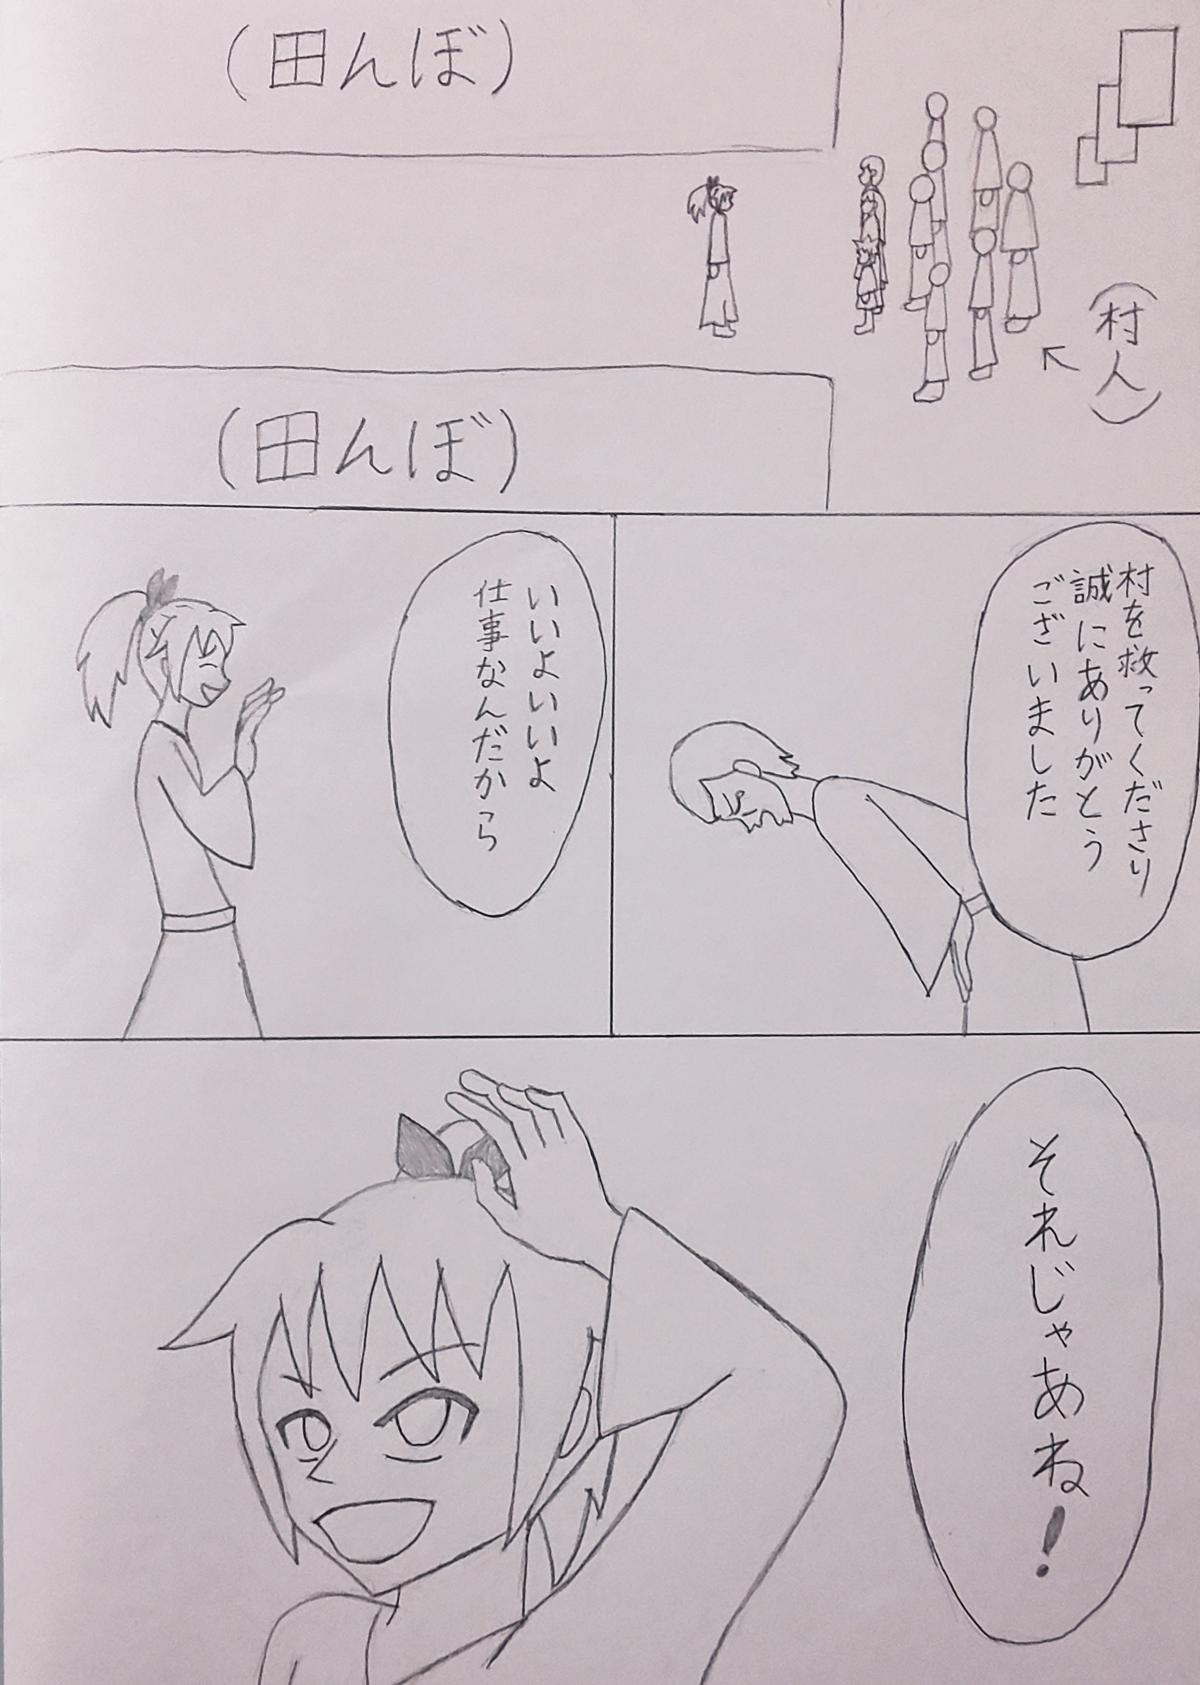 (田んぼ)
(村人)
(田んぼ)
村を救ってくださり
誠にありがとう
ございました
いいよいいよ
仕事なんだから
それじゃあね!